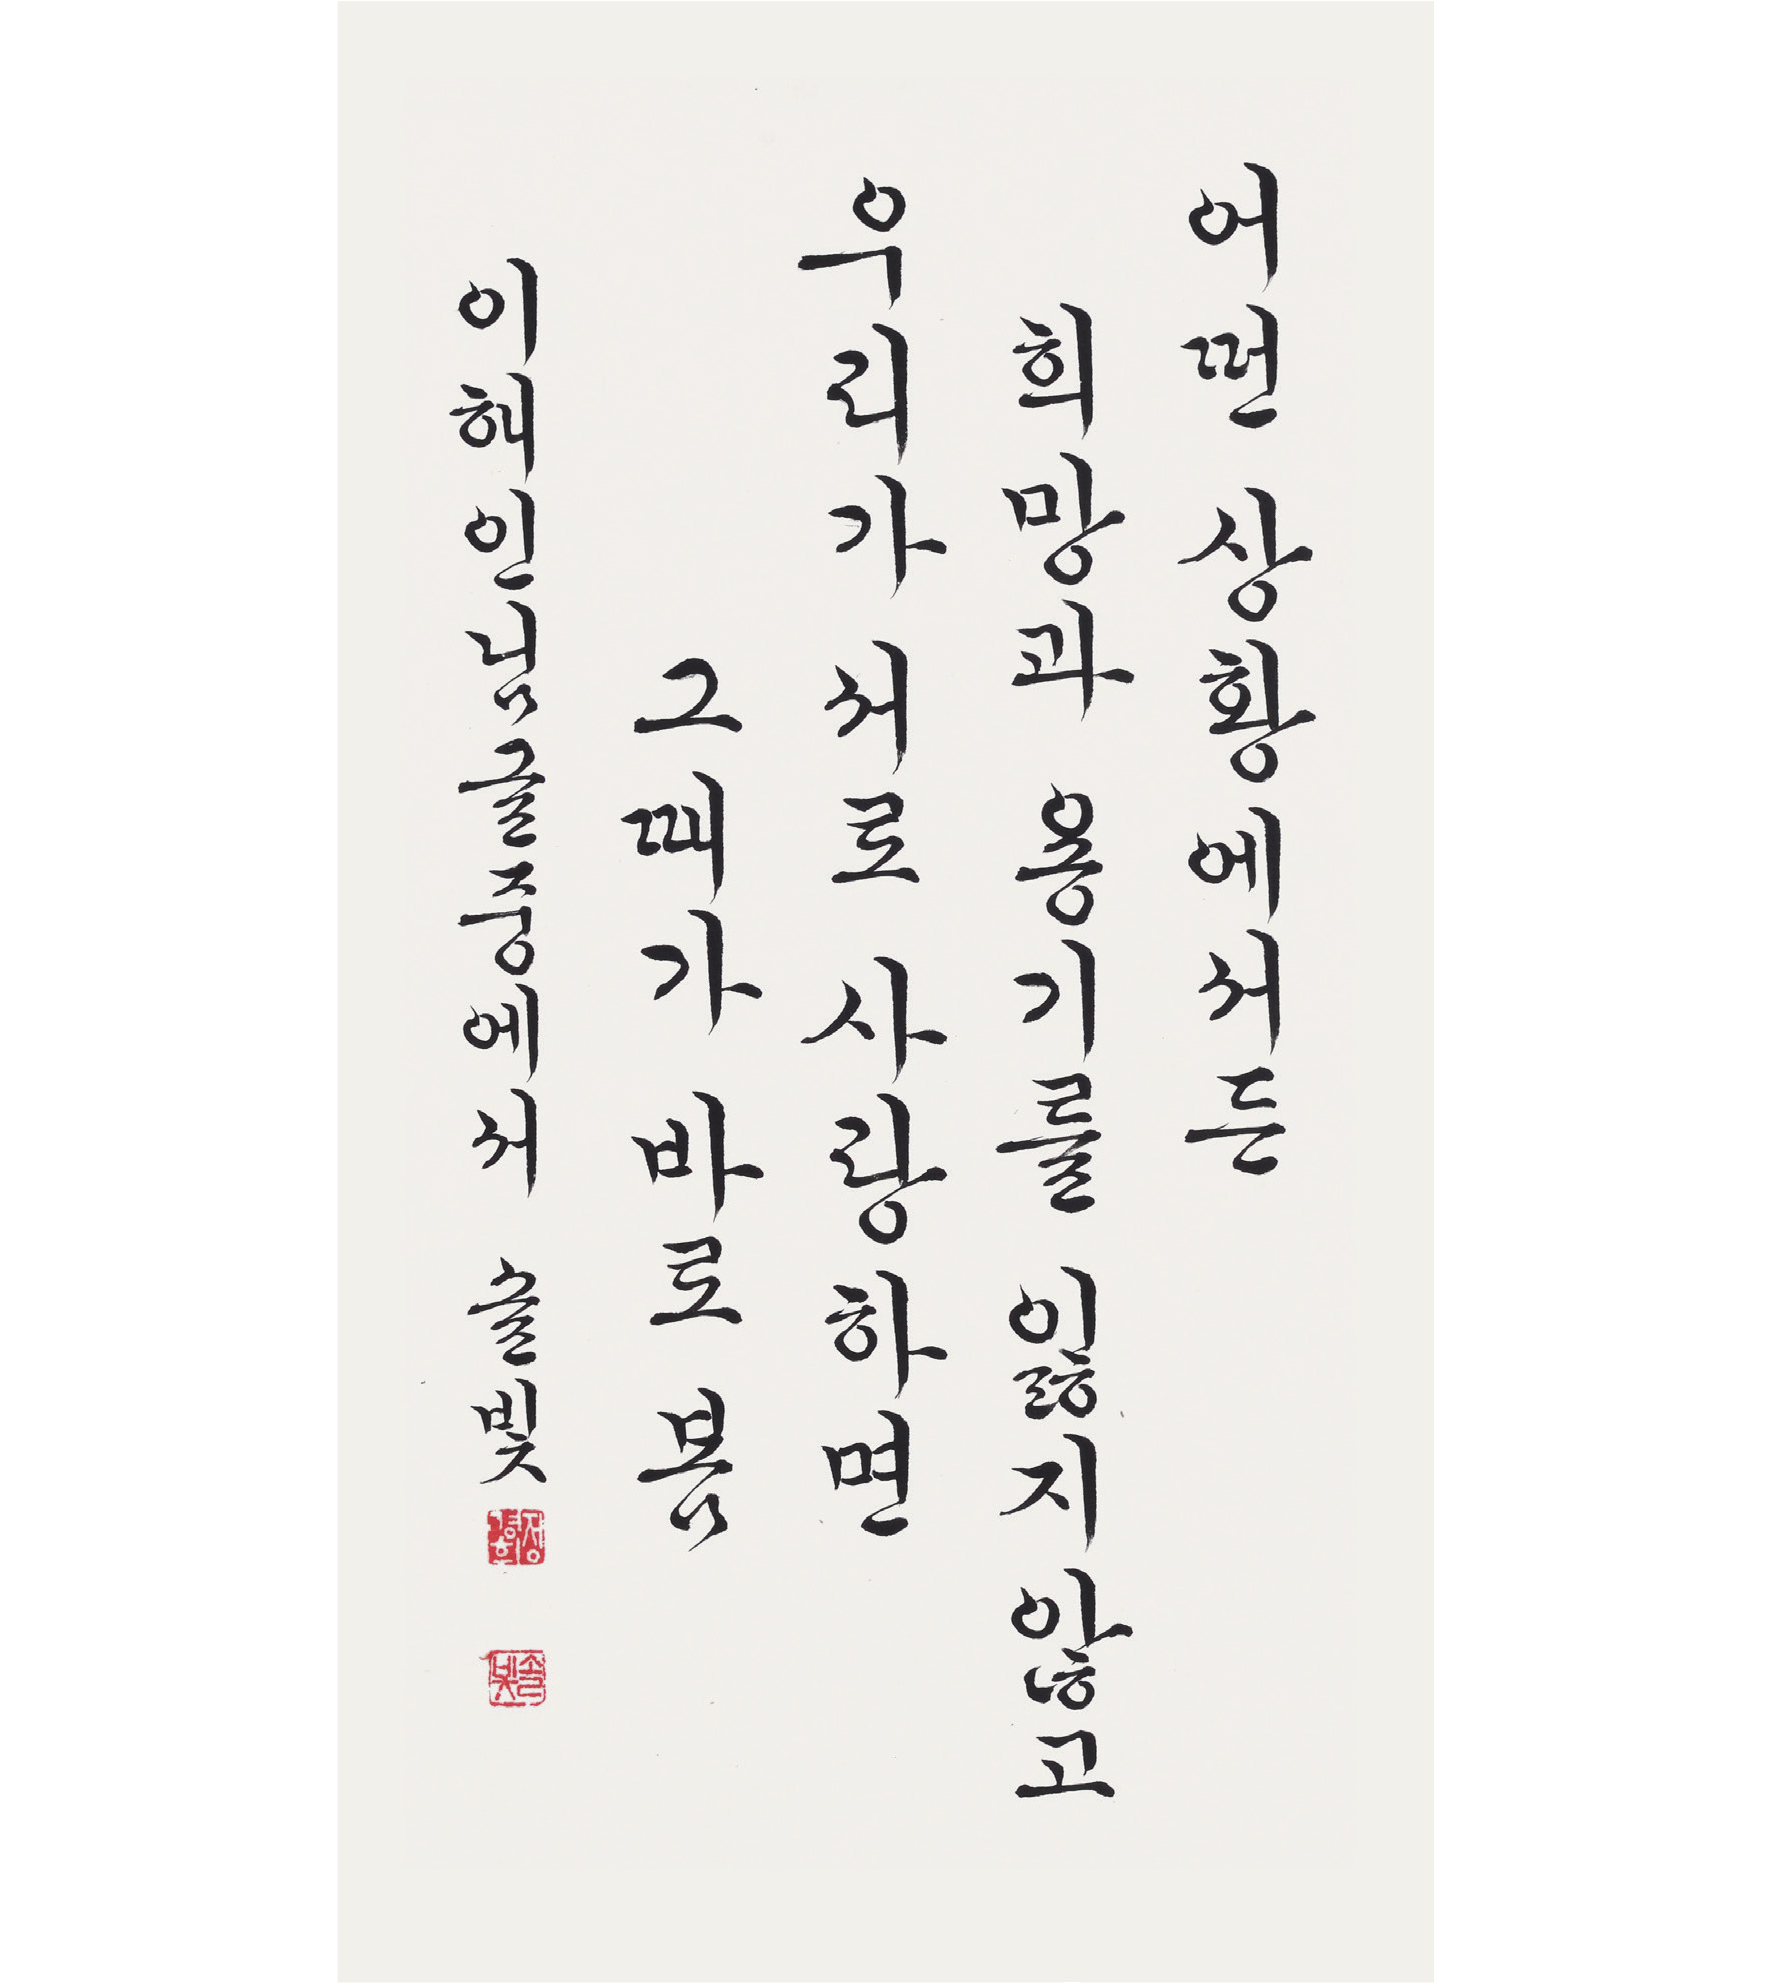 어떤 상황에서든
희망과 용기를 잃지 않고
우리가 서로 사랑하면
그때가 바로 봄
이해인님글중에서 솔빛
솔빛